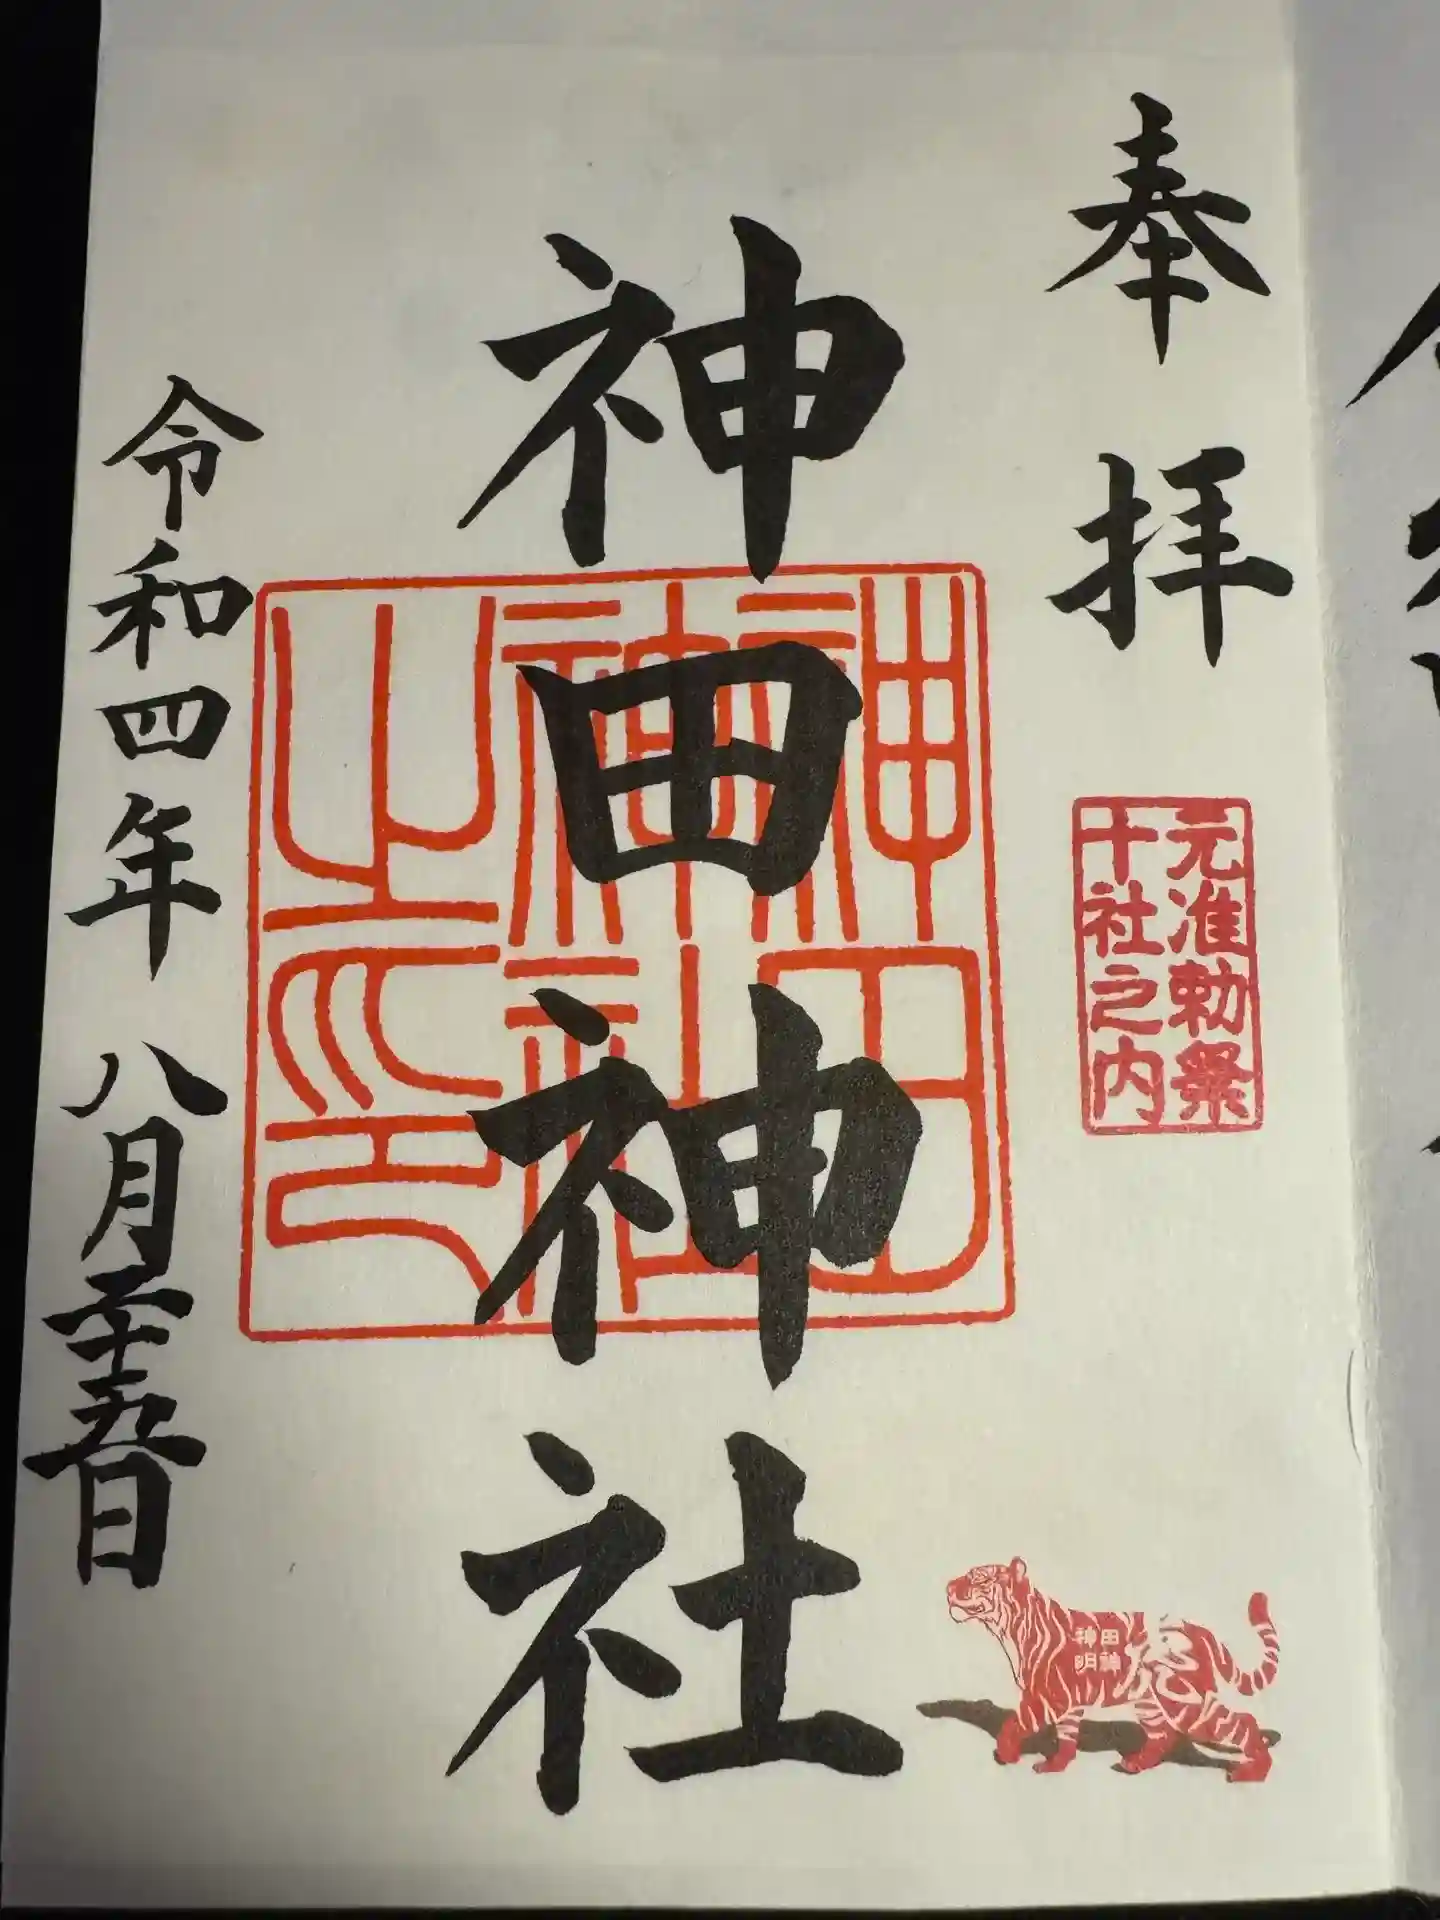 奉拝
元准勅祭
十社之内
神田神社
神田
神社
之印
神田
明神
虎
令和四年 八月二十五日